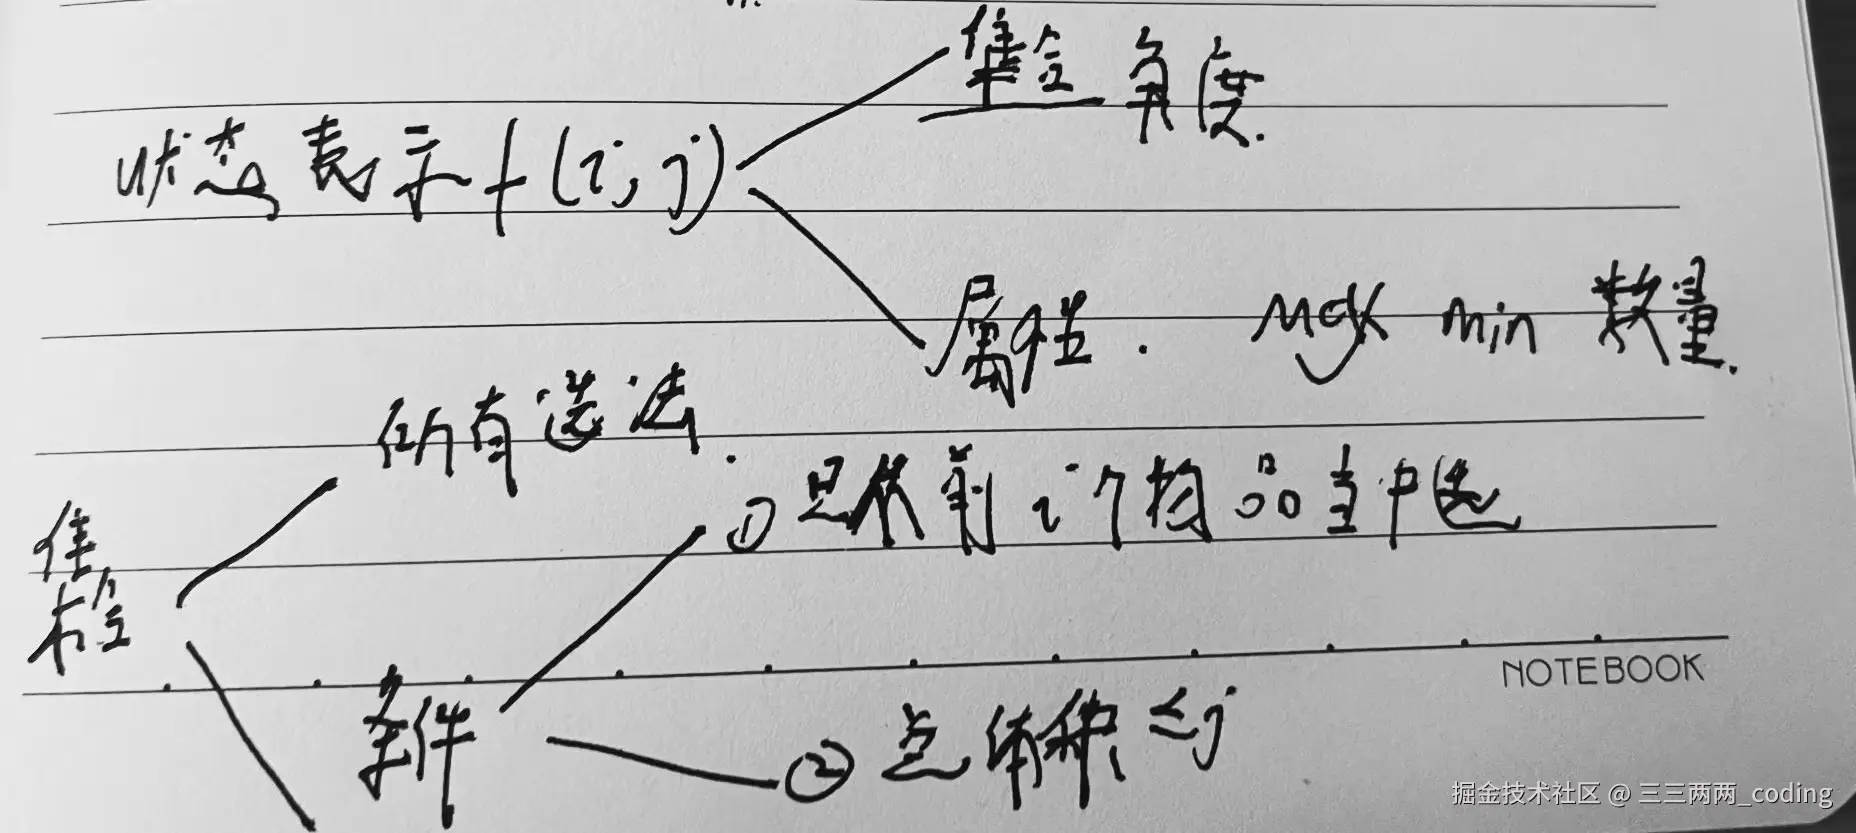 集合角度.
状态表示 f(i, j)
属性. max min 数量.
所有选法.
①只从前i个物品当中选
集
合
NOTEBOOK
条件
②总体积≤j
掘金技术社区 @ 三三两两_coding